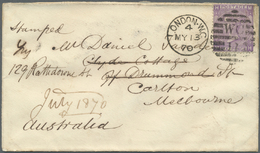 Stamped
Mr Daniel
LONDON·W.C
4
MY 13
70
WC
129 Rathdowne St
Clyde Cottage
off Drummond St
Carlton
Melbourne
July 1870
Australia